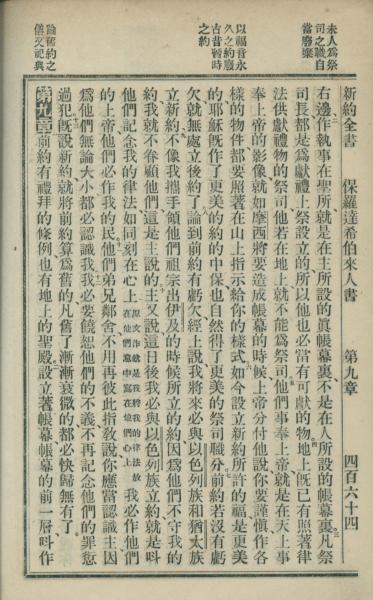 新約全書 保羅達希伯來人書 第九章 四百六十四
未人爲祭
司之職自
當廢棄
以福音永
久之約廢
古昔暫時
之約
論舊約之
儀文祀典
右邊、作執事在聖所就是在主所設的眞帳幕裏不是在人所設的帳幕裏凡祭
司長都是爲獻禮上祭設立的、所以他也必當有可獻的物、地上旣已有照著律
法供獻禮物的祭司他若在地上就不能爲祭司他們事奉上帝就是在天上事
奉上帝的影像就如摩西將要造成帳幕的時候上帝分付他說你要謹愼作各
樣的物件都要照著在山上指示給你的樣式如今設立新約所許的福是更美
的耶穌旣作了更美的約的中保也自然得了更美的祭司職分前約若沒有虧
欠就無處立後約了論到前約有虧欠經上說我將來必與以色列族和猶太族
立新約不像我攜手領他們祖宗出伊及的時候所立的約因爲他們不守我的
約我就不眷顧他們這是主說的主又說這日後我必與以色列族立約就是呌
他們記念我的律法如同刻在心上原文作就是我將我的律法放在他們意中寫在他們心上我必作他們
上帝他們必作我的民他們弟兄鄰舍不用再彼此指敎說你應當認識主因
爲他們無論大小都必認識我我必要饒恕他們的不義不再記念他們的罪愆
過犯旣說新約就將前約算爲舊的凡舊了漸漸衰微的都必快歸無有了。
第九章前約有禮拜的條例也有地上的聖殿設立著帳幕帳幕的前一層呌作